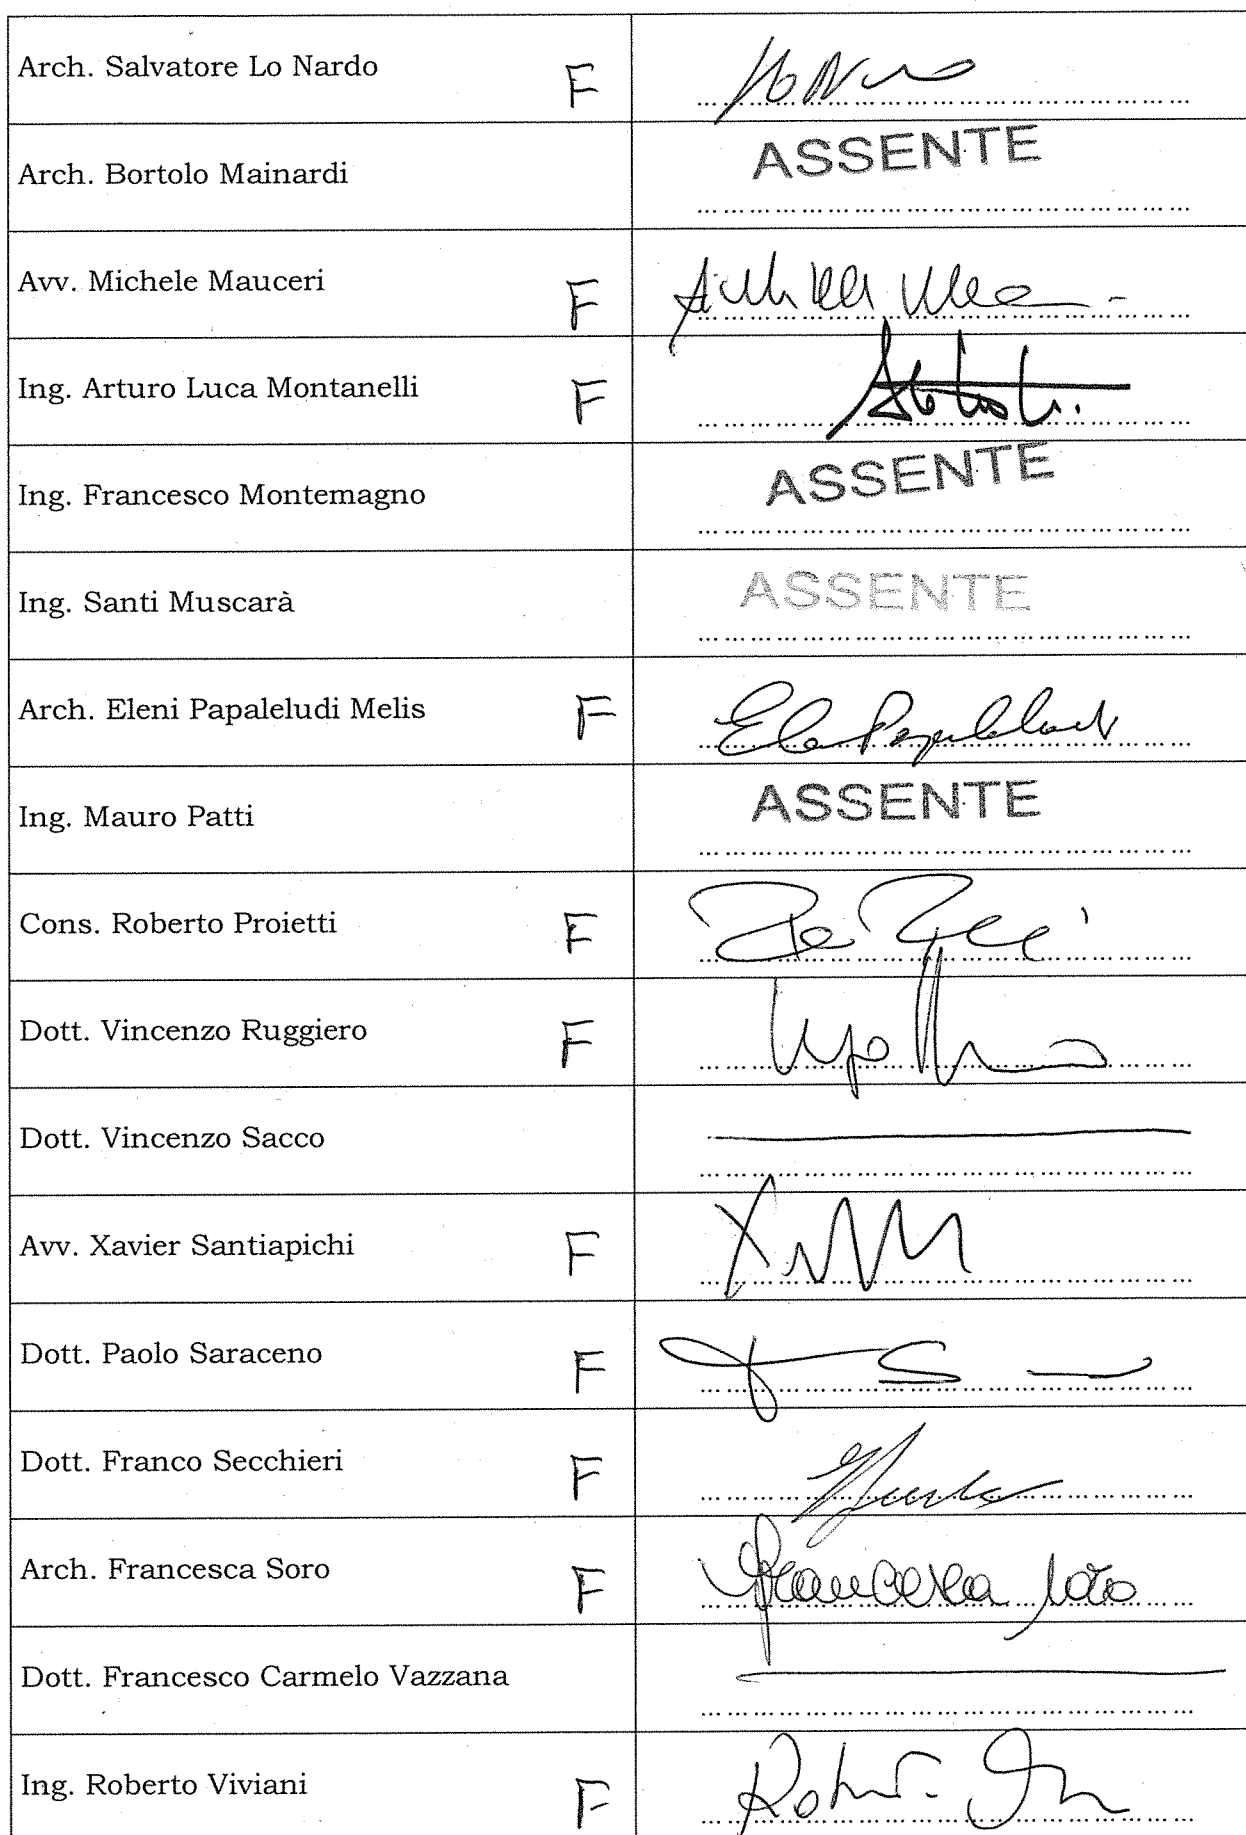 Arch. Salvatore Lo Nardo F
Arch. Bortolo Mainardi ASSENTE
Avv. Michele Mauceri F
Ing. Arturo Luca Montanelli F
Ing. Francesco Montemagno ASSENTE
Ing. Santi Muscarà ASSENTE
Arch. Eleni Papaleludi Melis F
Ing. Mauro Patti ASSENTE
Cons. Roberto Proietti F
Dott. Vincenzo Ruggiero F
Dott. Vincenzo Sacco
Avv. Xavier Santiapichi F
Dott. Paolo Saraceno F
Dott. Franco Secchieri F
Arch. Francesca Soro F Francesca Soro
Dott. Francesco Carmelo Vazzana
Ing. Roberto Viviani F